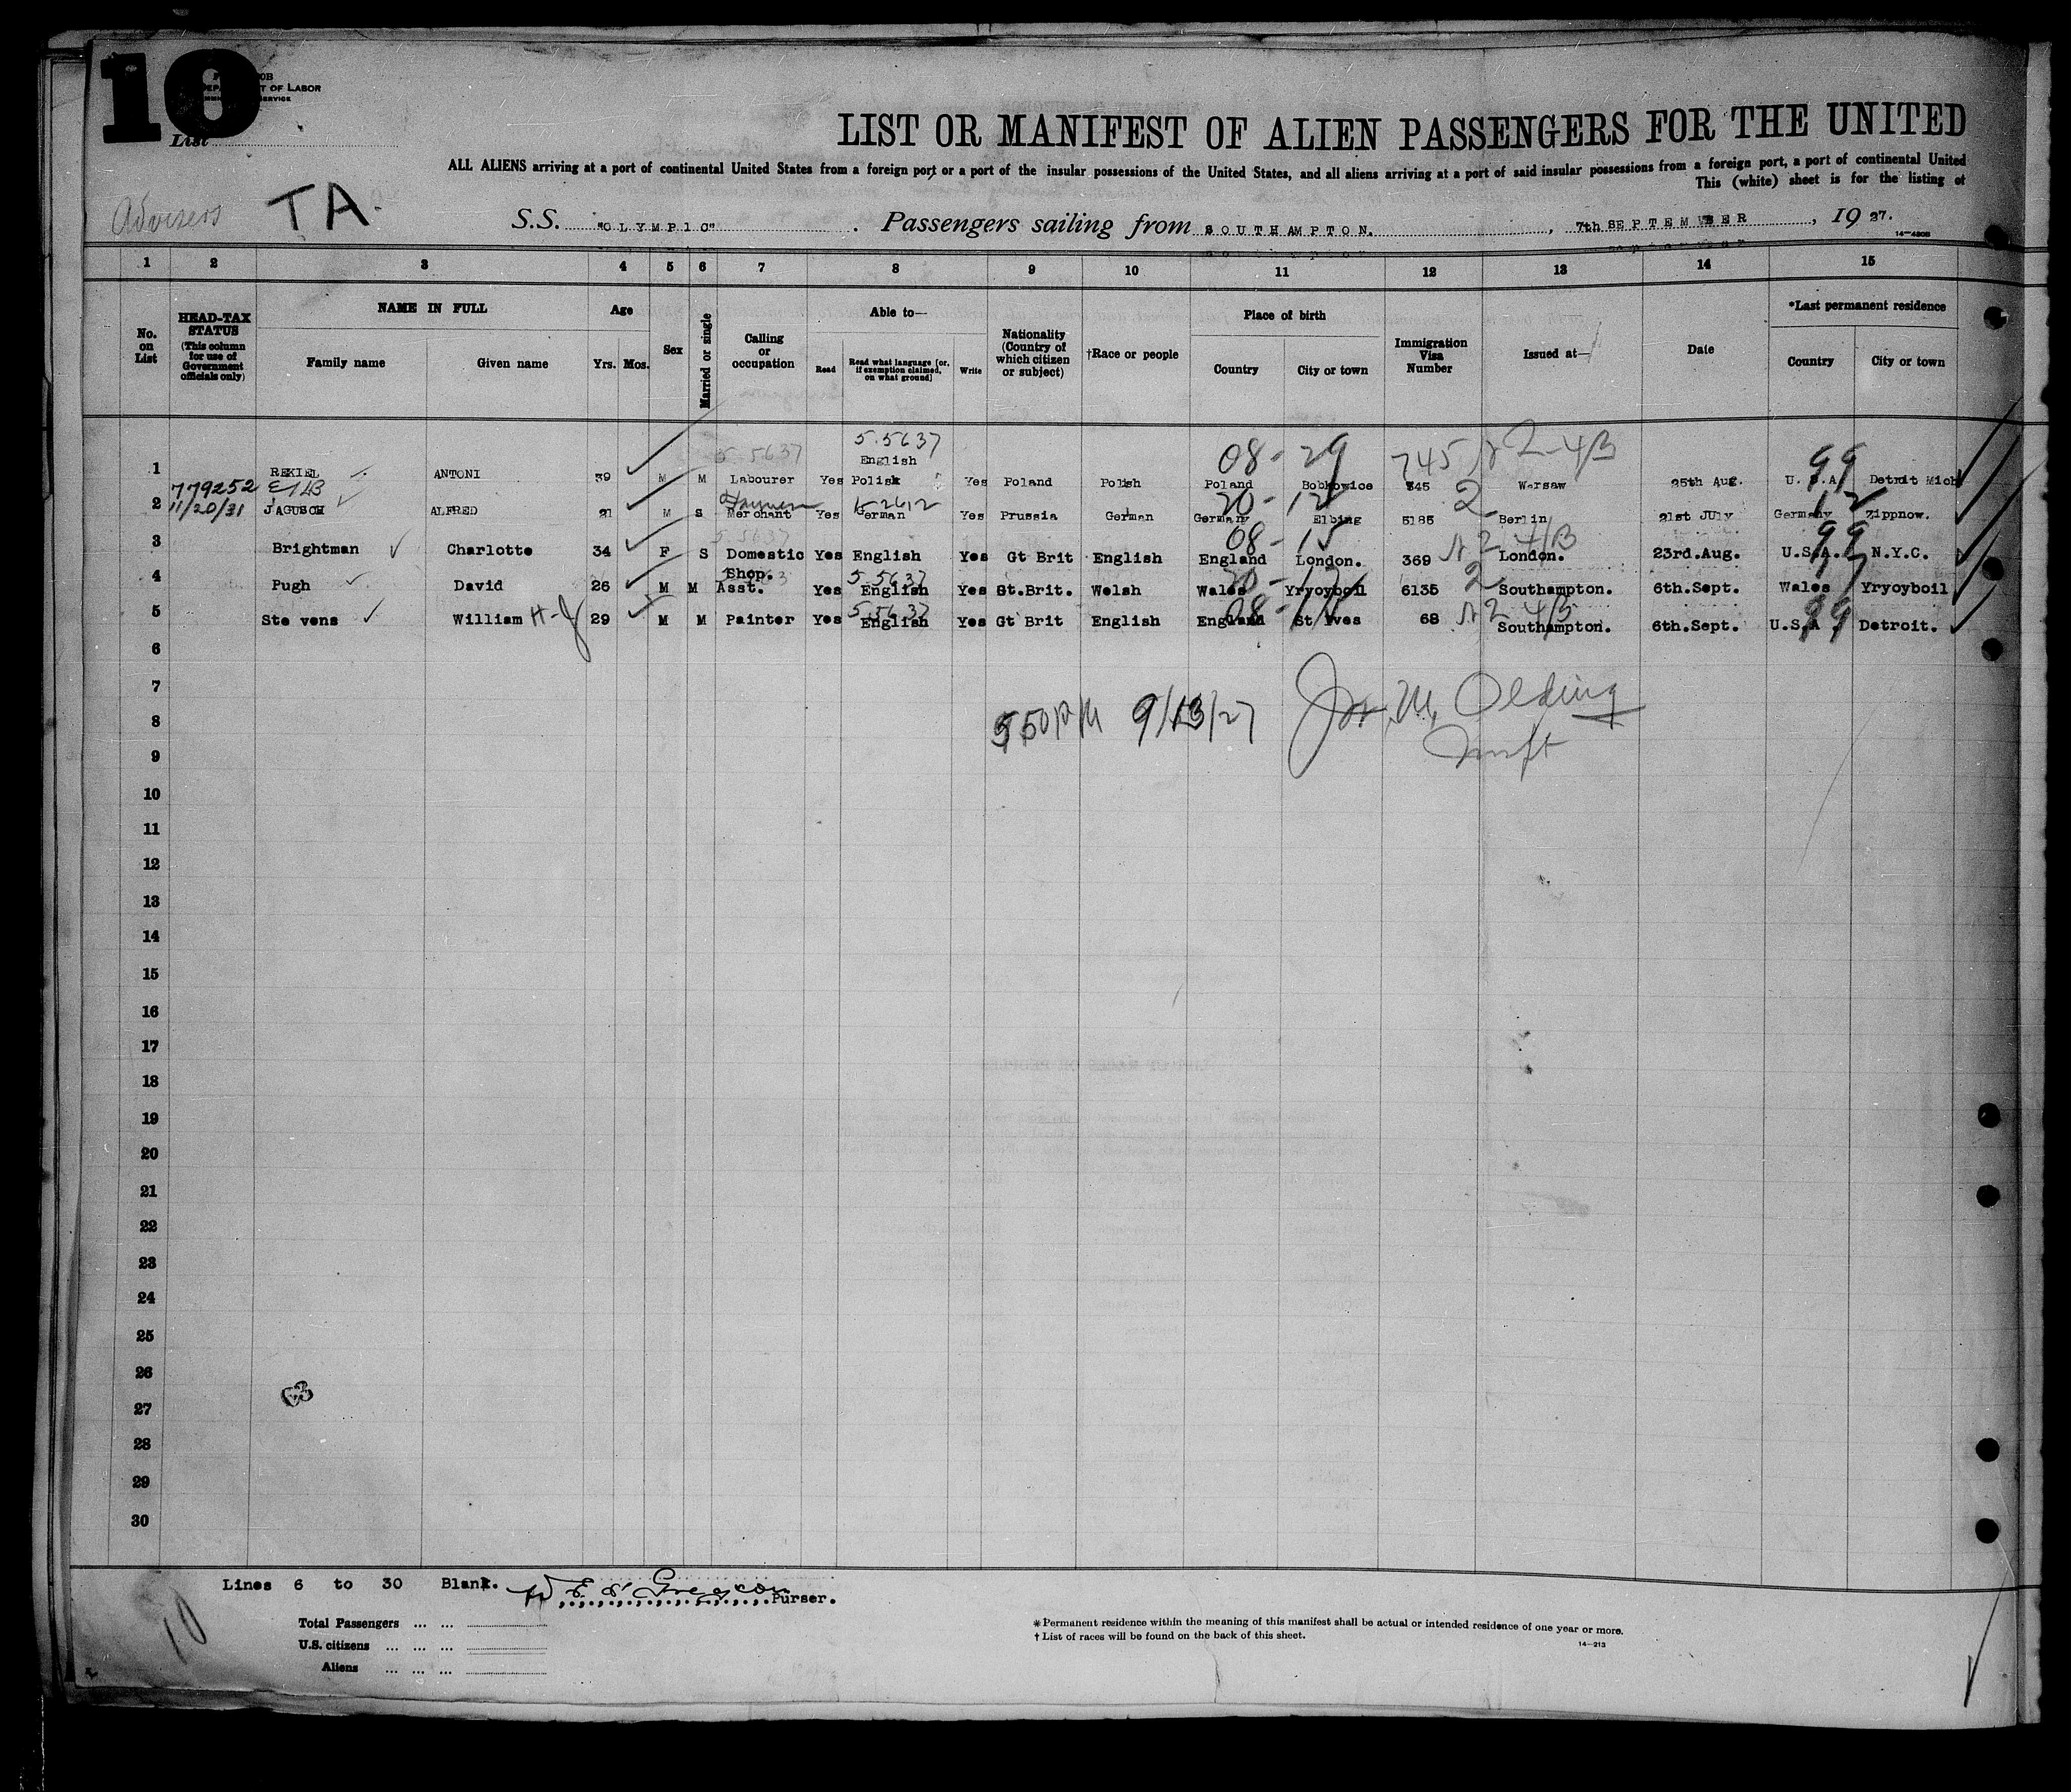 10
DEPARTMENT OF LABOR
List
LIST OR MANIFEST OF ALIEN PASSENGERS FOR THE UNITED
ALL ALIENS arriving at a port of continental United States from a foreign port or a port of the insular possessions of the United States, and all aliens arriving at a port of said insular possessions from a foreign port, a port of continental United
This (white) sheet is for the listing of
TA.
S.S. "OLYMPIC" . Passengers sailing from SOUTHAMPTON. , 7th SEPTEMBER , 19 27.
1 2 3 4 5 6 7 8 9 10 11 12 13 14 15
No. on List
HEAD-TAX STATUS (This column for use of Government officials only)
NAME IN FULL
Family name Given name
Age
Yrs. Mos.
Sex
Married or single
Calling or occupation
Able to—
Read Read what language [or, if exemption claimed, on what ground] Write
Nationality (Country of which citizen or subject)
†Race or people
Place of birth
Country City or town
Immigration Visa Number
Issued at—
Date
*Last permanent residence
Country City or town
5 5637 5.5637 08-29 745 99
English
1 REKIEL ANTONI 39 M M Labourer Yes Polish Yes Poland Polish Poland Bobkowice 845 Warsaw 25th Aug. U.S.A. Detroit Mich
779252
11/20/31
2 JAGUSCH ALFRED 21 M S Merchant Yes German Yes Prussia German Germany Elbing 5185 Berlin 21st JUly Germany Zippnow.
3 Brightman Charlotte 34 F S Domestic Yes English Yes Gt Brit English England London. 369 London. 23rd.Aug. U.S.A. N.Y.C.
4 Pugh David 26 M M Shop. Asst. Yes English Yes Gt.Brit. Welsh Wales Yryoyboil 6135 Southampton. 6th.Sept. Wales Yryoyboil
5 Ste vens William H-J 29 M M Painter Yes English Yes Gt Brit English England St Yves 68 Southampton. 6th.Sept. U.S.A Detroit.
6
7
8
550PM 9/13/27 Jos. M. Olding
Inspt
9
10
11
12
13
14
15
16
17
18
19
20
21
22
23
24
25
26
27
28
29
30
Lines 6 to 30 Blank. Purser.
10
Total Passengers ... ...
U.S. citizens ... ... ...
Aliens ... ... ...
* Permanent residence within the meaning of this manifest shall be actual or intended residence of one year or more.
† List of races will be found on the back of this sheet.
14—213